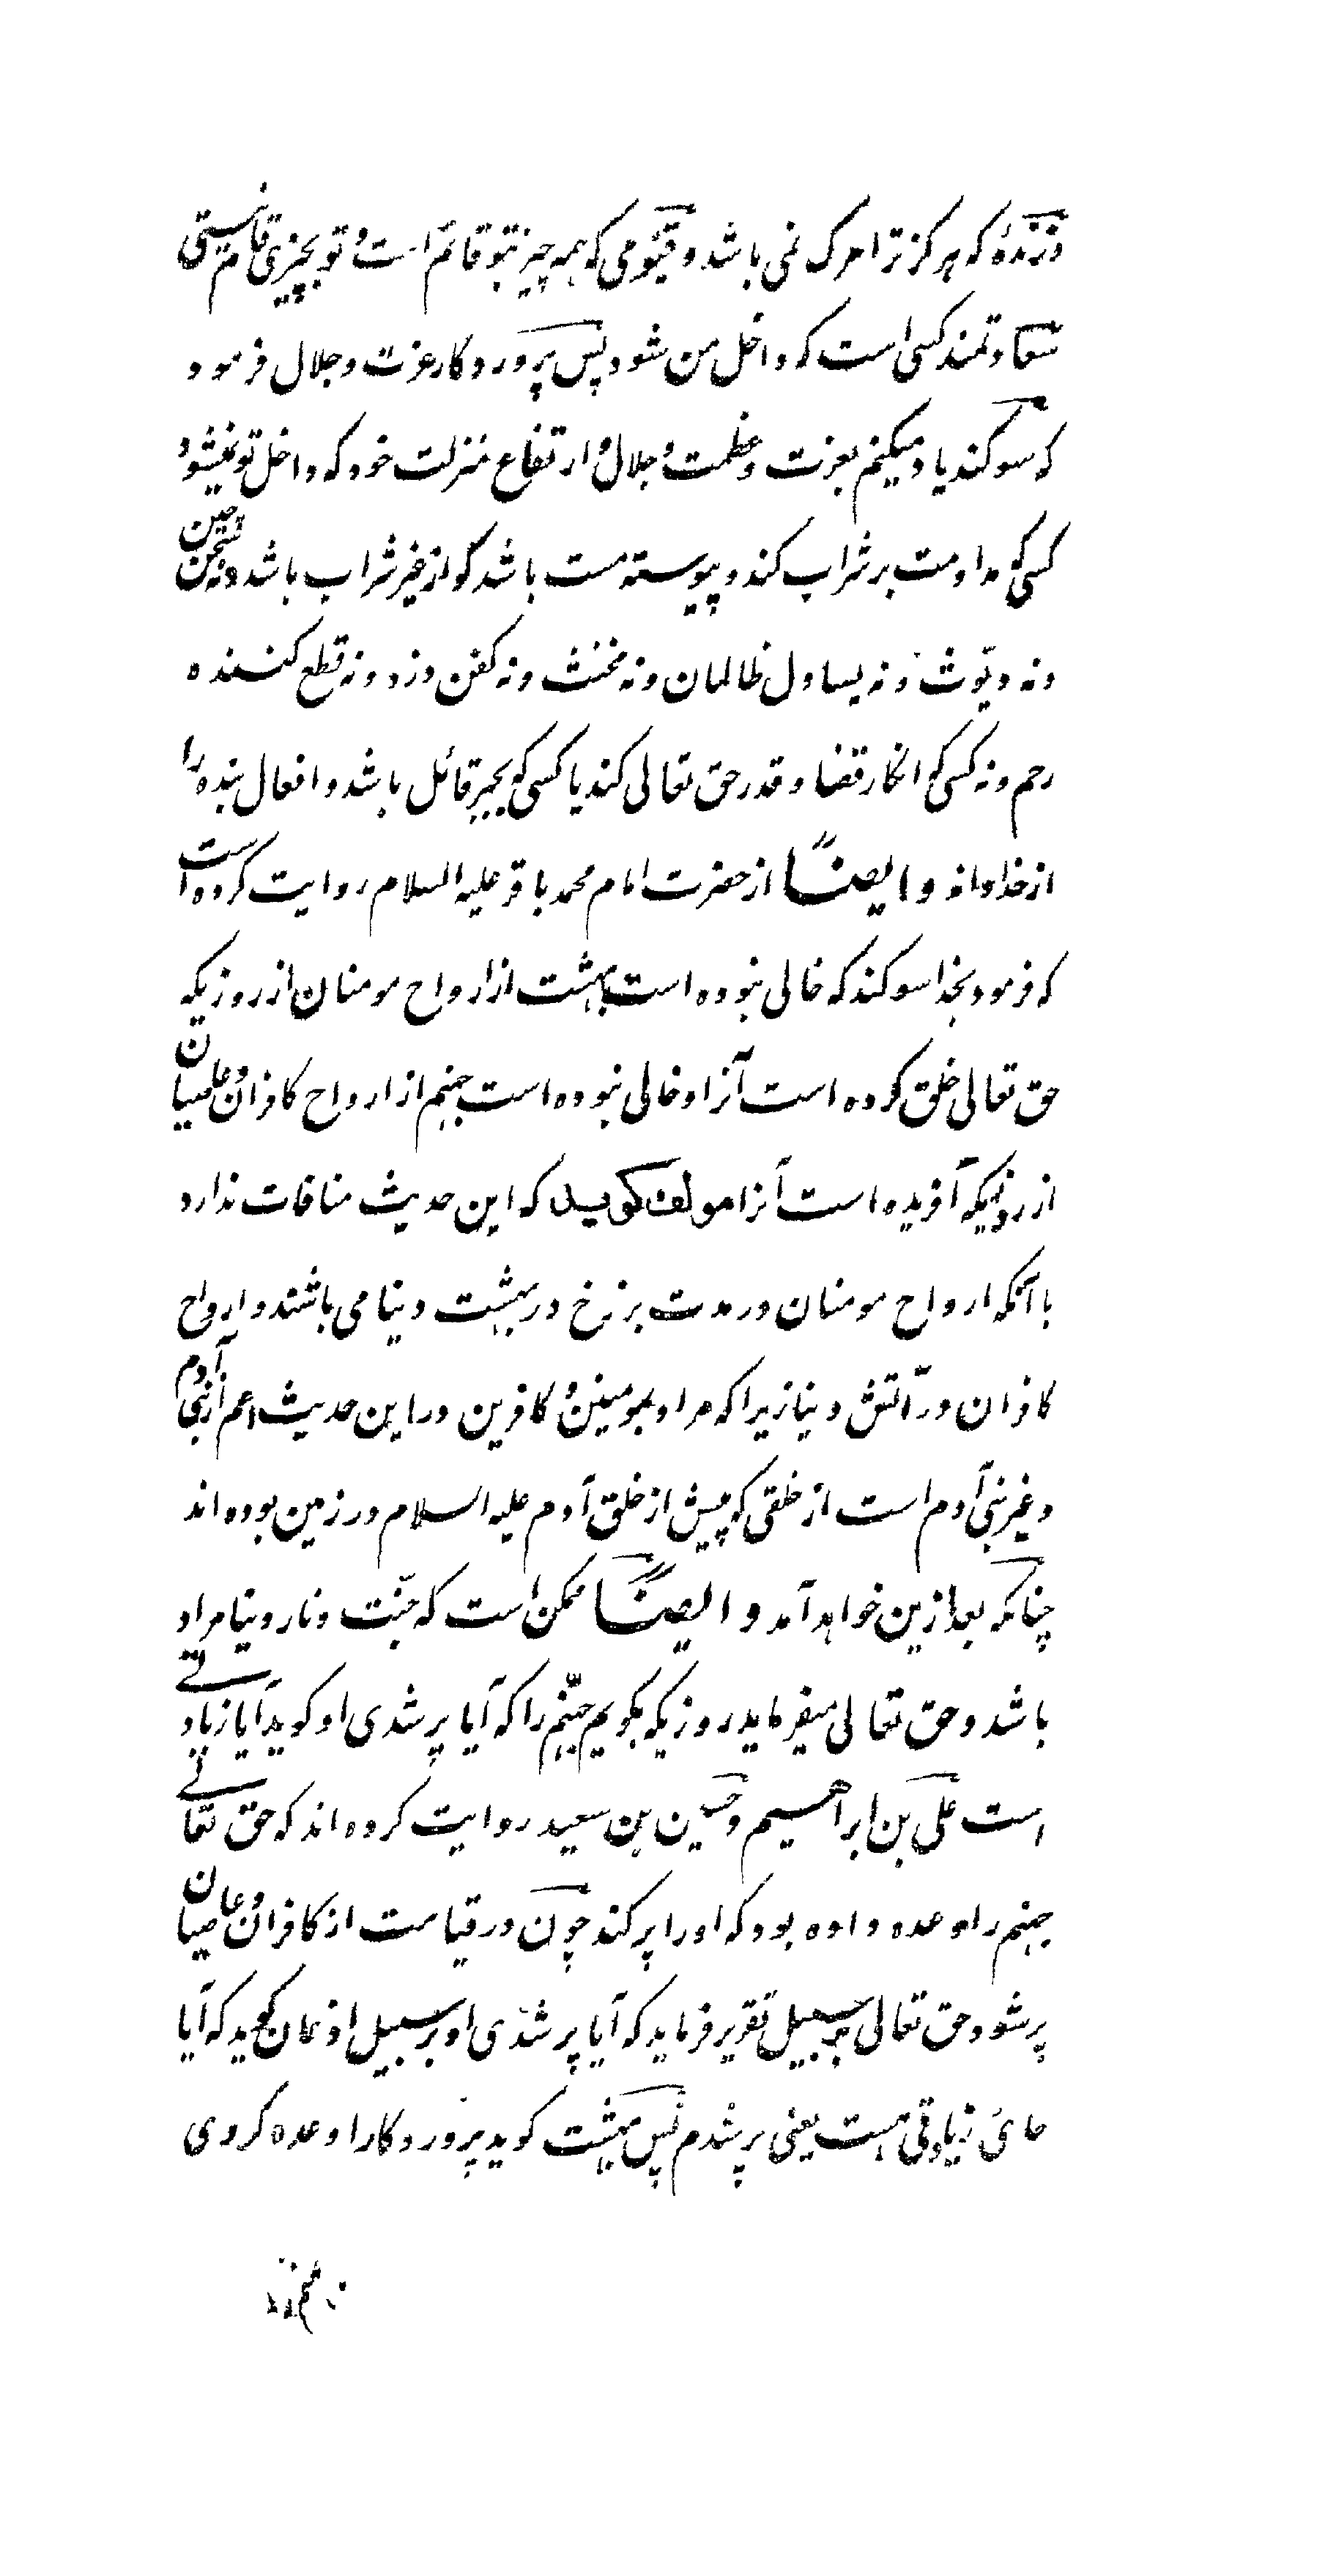 وزندهٔ که هرکز ترا مرک نمی باشد و قیّومی که همه چیز بتو قائم است و تو بچیزی قائم نیستی
سعادتمند کسی است که داخل من شود پس پروردکار عزت و جلال فرمود
که سوکند یاد میکنم بعزت و عظمت و جلال و ارتفاع منزلت خود که داخل تو نمیشود
کسی که مداومت بر شراب کند و پیوسته مست باشد کو از غیر شراب باشد و نه
و نه دیّوث و نه یساول ظالمان و نه مخنث و نه کفن دزد و نه قطع کننده
رحم و نه کسی که انکار قضا و قدر حق تعالی کند یا کسی که بجبر قائل باشد و افعال بنده را
از خدا داند و ایضًا از حضرت امام محمد باقر علیه السلام روایت کرده است
که فرمود بخدا سوکند که خالی نبوده است بهشت از ارواح مومنان از روزیکه
حق تعالی خلق کرده است آنرا و خالی نبوده است جهنم از ارواح کافران و عاصیان
از روزیکه آفریده است آنرا مولف کوید که این حدیث منافات ندارد
با آنکه ارواح مومنان در مدت برزخ در بهشت دنیا می باشند و ارواح
کافران در آتش دنیا زیرا که مراد بمومنین و کافرین در این حدیث اعم از بنی آدم
و غیر بنی آدم است از خلقی که پیش از خلق آدم علیه السلام در زمین بوده اند
چنانکه بعد ازین خواهد آمد و ایضًا ممکن است که جنّت و نار دنیا مراد
باشد و حق تعالی میفرماید روزیکه بکویم جهنّم را که آیا پر شدی او کوید آیا زیادتے
است علی بن ابراهیم و حسین بن سعید روایت کرده اند که حق تعالے
جهنم را وعده داده بود که او را پر کند چون در قیامت از کافران و عاصیان
پر شود حق تعالی بر سبیل تقریر فرماید که آیا پر شدی او بر سبیل اذعان کوید که آیا
جای زیادتی هست یعنی پر شدم پس بهشت کوید پروردکارا وعده کردی